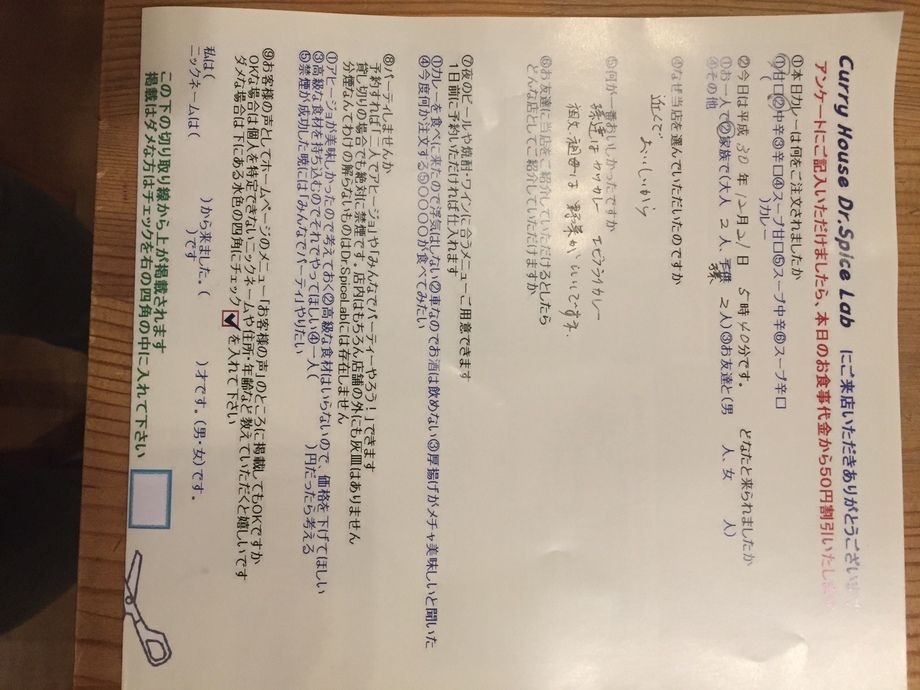 Curry House Dr.Spice Lab にご来店いただきありがとうござい
アンケートにご記入いただけましたら、本日のお食事代金から50円割引いたし
①本日カレーは何をご注文されましたか
①甘口②中辛③辛口④スープ甘口⑤スープ中辛⑥スープ辛口
⑦( )カレー
②今日は平成 30年 12月 21日 5時 40分です。 どなたと来られましたか
①お一人で②家族で(大人 2人、子供 孫 2人)③お友達と(男 人、女 人)
④その他
④なぜ当店を選んでいただいたのですか
近くで おいしいから
⑤何が一番おいしかったですか
孫達はカツカレー エビフライカレー
祖父、祖母は 野菜がいいですネ
⑥お友達に当店をご紹介していただけるとしたら
どんな店としてご紹介していただけますか
⑦夜のビールや焼酎・ワインに合うメニューご用意できます
1日前に予約いただければ仕入れます
①カレーを食べに来たので浮気はしない②車なのでお酒は飲めない③厚揚げがメチャ美味しいと聞いた
④今度何か注文する⑤○○○○が食べてみたい
⑧パーティしませんか
予約すれば「二人でアヒージョ」や「みんなでパーティーやろう!」できます
貸し切りの場合でも絶対に禁煙です。店内はもちろん店舗の外にも灰皿はありません
分煙なんてわけの解らないものはDr.SpiceLabには存在しません
①アヒージョが美味しかったので考えておく②高級な食材はいらないので、価格を下げてほしい
③高級な食材を持ち込むのでそれでやってほしい④一人( )円だったら考える
⑤禁煙が成功した暁には「みんなでパーティ」やりたい
⑨お客様の声としてホームページのメニュー「お客様の声」のところに掲載してもOKですか
OKな場合は個人を特定できないニックネームや住所・年齢など教えていただくと嬉しいです
ダメな場合は下にある水色の四角にチェック を入れて下さい
私は( )から来ました。( )才です。(男・女)です。
ニックネームは( )です
この下の切り取り線から上が掲載されます
掲載はダメな方はチェックを右の四角の中に入れて下さい